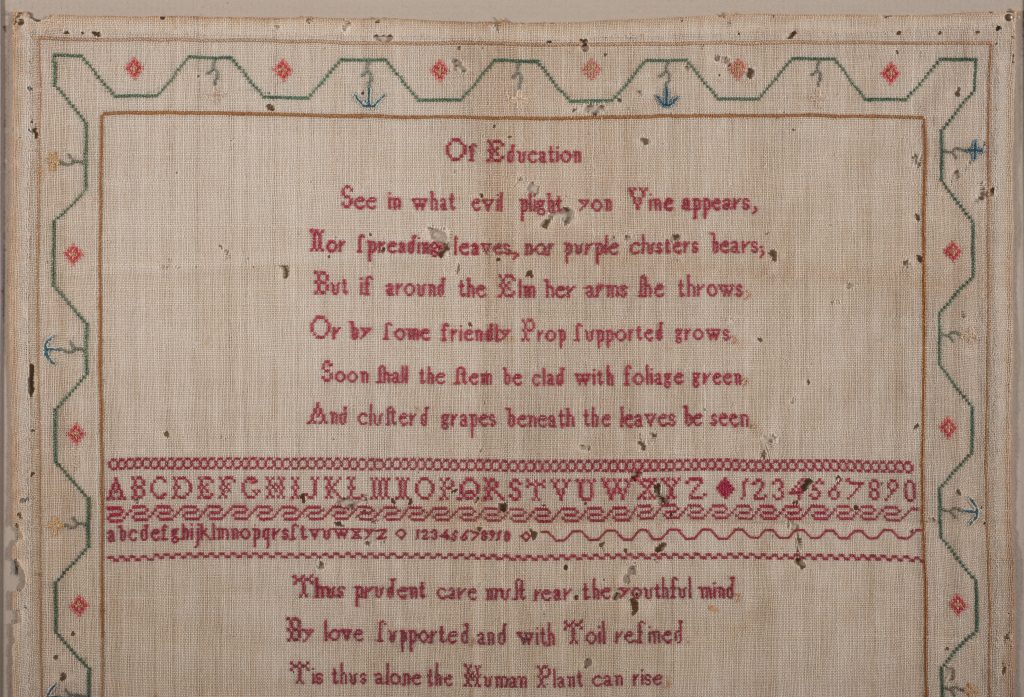 Of Education
See in what evil plight, yon Vine appears,
Nor ſpreading leaves, nor purple cluſters bears;
But if around the Elm her arms ſhe throws
Or by ſome friendly Prop ſupported grows
Soon ſhall the ſtem be clad with foliage green
And cluſter'd grapes beneath the leaves be seen
ABCDEFGHIJKLMNOPQRSTVUWXYZ 1234567890
abcdefghijklmnopqrsſtvuwxyz 12345678910
Thus prudent care muſt rear the youthful mind
By love ſupported and with Toil refined
Tis thus alone the Human Plant can rise